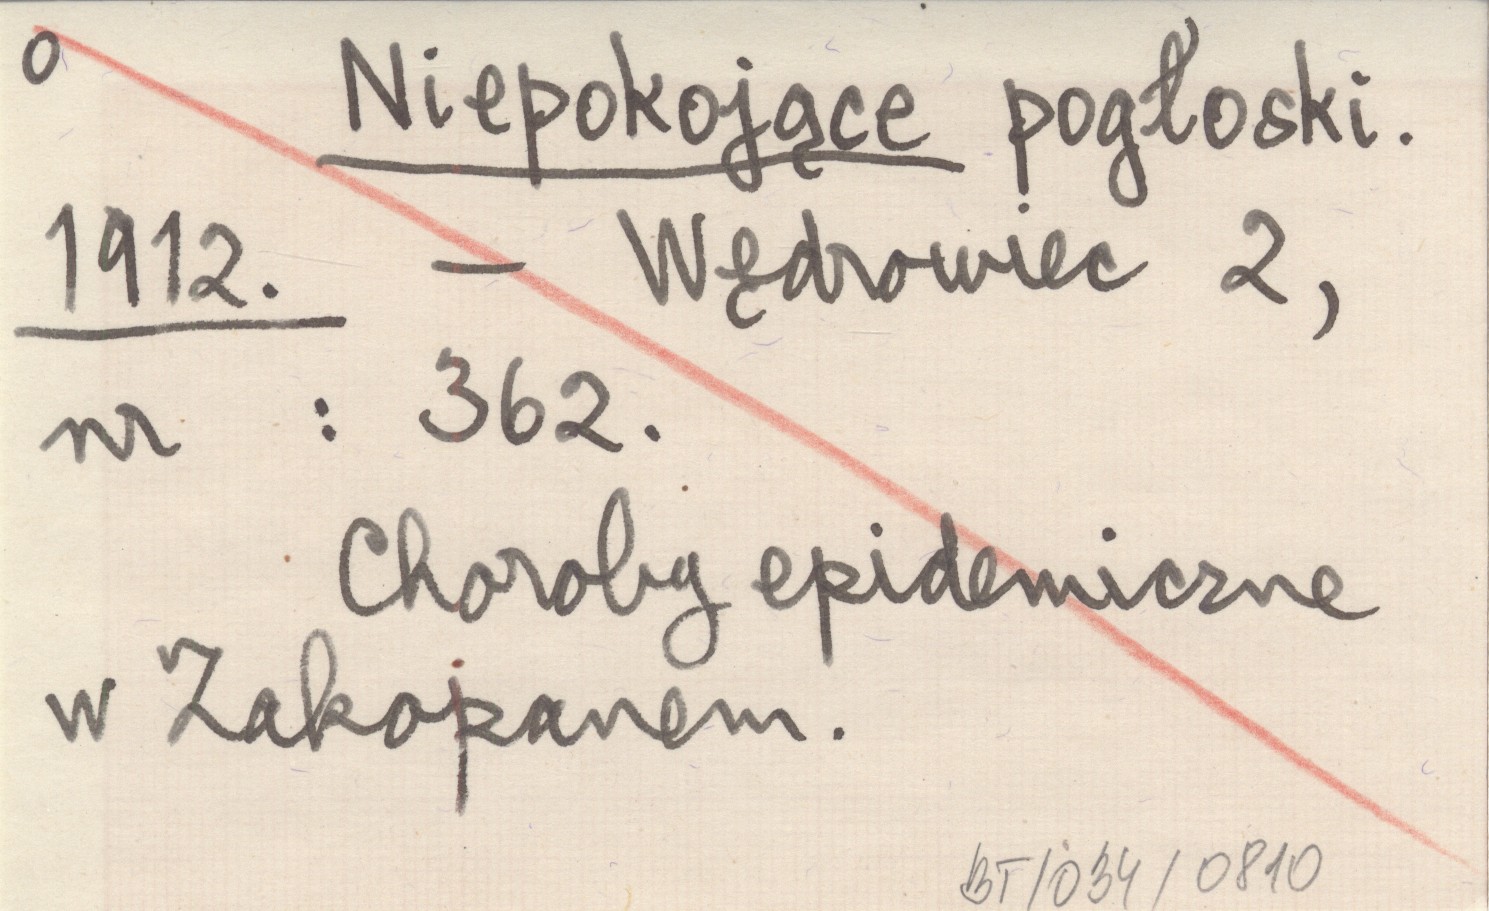 o Niepokojące pogłoski.
1912. – Wędrowiec 2,
nr : 362.
Choroby epidemiczne
w Zakopanem.
BT/034/0810